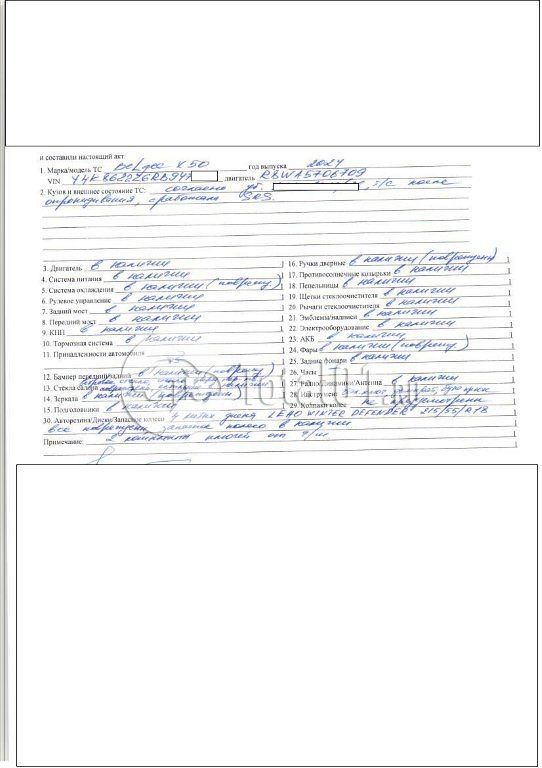 и составили настоящий акт.
1. Марка/модель ТС Belgee X50 год выпуска 2024
VIN Y4K8622Z6RB94 двигатель RBWA5706709
2. Кузов и внешнее состояние ТС: согласно , а/с после
опрокидывания, сработала SRS.
3. Двигатель в наличии
4. Система питания в наличии
5. Система охлаждения в наличии (поврежд)
6. Рулевое управление в наличии
7. Задний мост в наличии
8. Передний мост в наличии
9. КПП в наличии
10. Тормозная система в наличии
11. Принадлежности автомобиля
12. Бампер передний/задний в наличии (поврежд)
13. Стёкла салона
14. Зеркала в наличии (повреждены)
15. Подголовники в наличии
16. Ручки дверные в наличии (повреждены)
17. Противосолнечные козырьки в наличии
18. Пепельницы в наличии
19. Щетки стеклоочистителя в наличии
20. Рычаги стеклоочистителя в наличии
21. Эмблемы/надписи в наличии
22. Электрооборудование в наличии
23. АКБ в наличии
24. Фары в наличии (поврежд)
25. Задние фонари в наличии
26. Часы
27. Радио/Динамики/Антенна в наличии
28. Инструмент
29. Колпаки колес не предусмотрены
30. Авторезина/Диски/Запасное колесо 4 литых диска LEAO WINTER DEFENDER 215/55/R18
все повреждены, запасное колесо в наличии
Примечание: 2 комплекта ключей от а/м
total01.ru